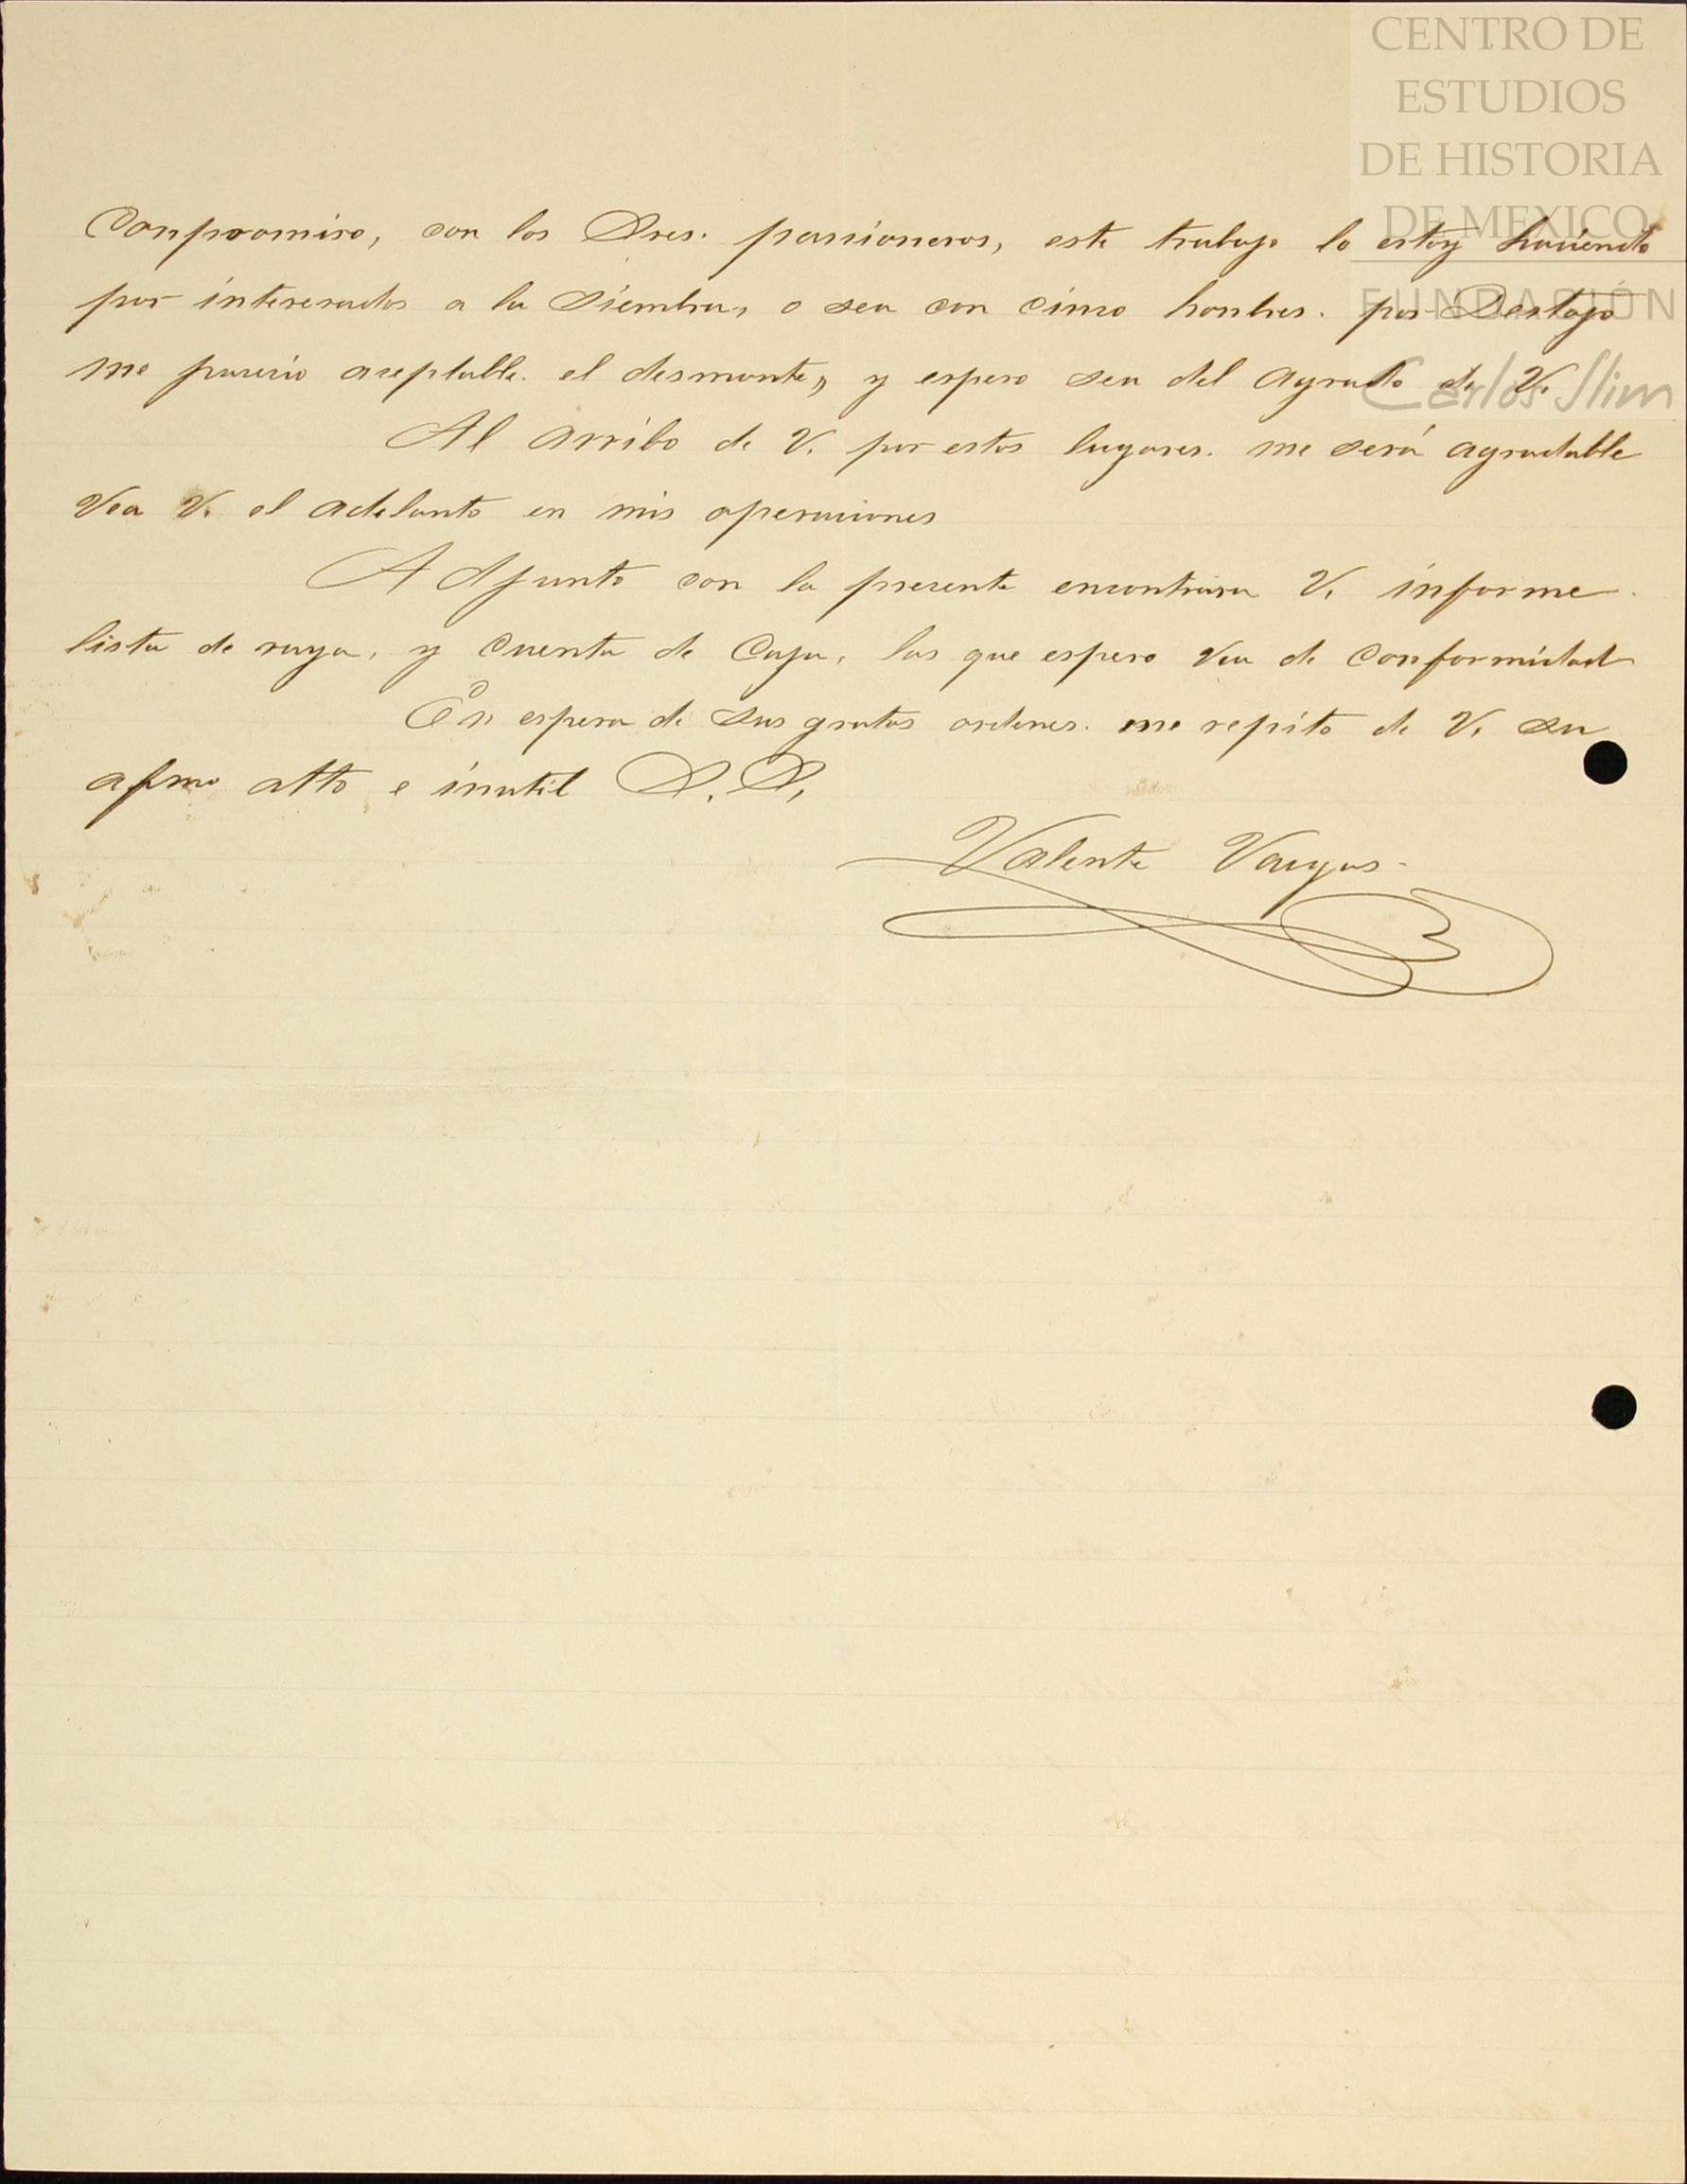 CENTRO DE
ESTUDIOS
DE HISTORIA
DE MEXICO
FUNDACIÓN
Carlos Slim
Conpromiso, con los Sres. parsioneros, este trabajo lo estoy haciendo
por interesados a la Siembra, o sea con cinco honbres. por Destajo
me parecio aseptable. el desmonte, y espero sea del agrado de V.
Al arribo de V. por estos lugares. me será agradable
Vea V. el adelanto en mis operaciones
Adjunto con la presente encontrara V. informe.
lista de raya, y Cuenta de Caja, las que espero Vea de Conformidad
En espera de sus gratas ordenes. me repito de V. su
afmo atto e inutil S. S.
Valente Vargas